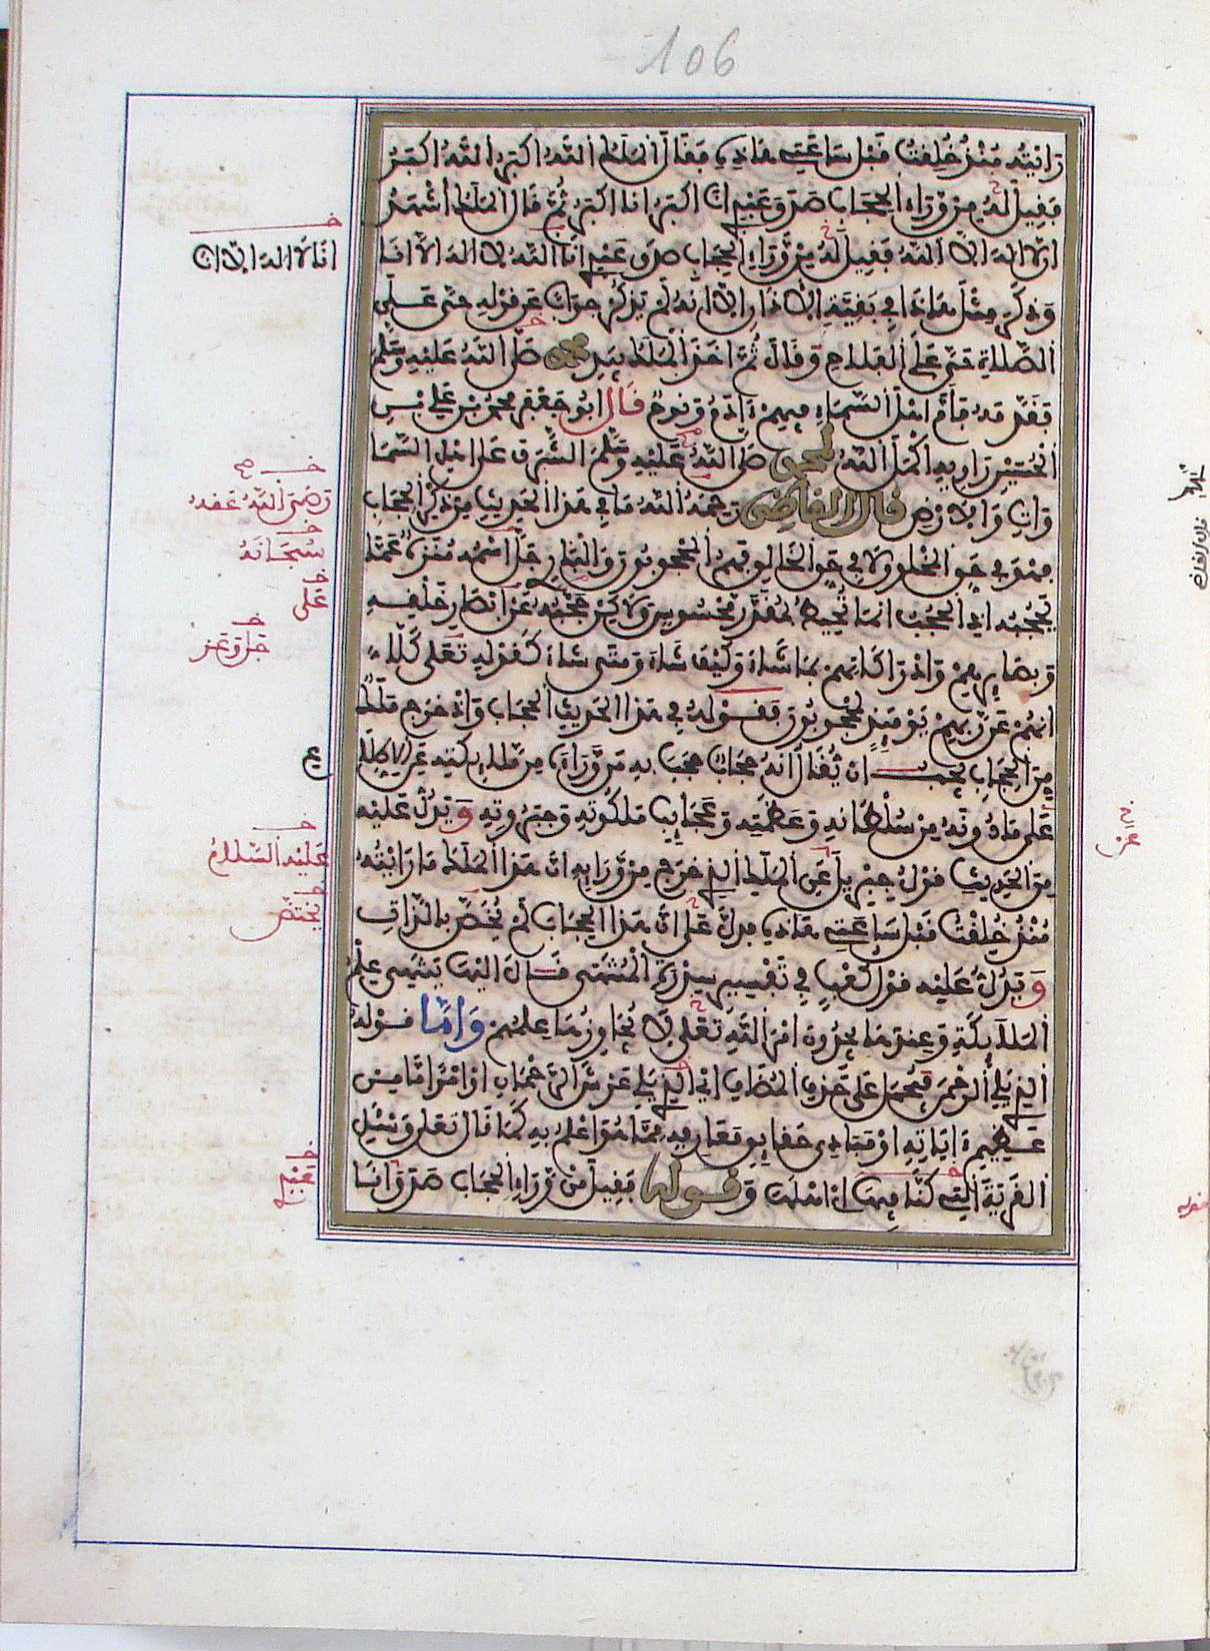 106
رأيته منذ خلقت قبل ساعتي هاذه فقال الملك الله اكبر الله اكبر
فقيل له من وراء الحجاب صدق عبدي انا اكبر انا اكبر ثم قال الملك اشهد
ان لا اله الا الله فقيل له من وراء الحجاب صدق عبدي انا الله لا اله الا انا
وذكر مثل هاذا في بقية الاذان الا انه لم يذكر جوابا عن قوله حي على
الصلاة حي على الفلاح وقال ثم اخذ الملك بيد محمد صلى الله عليه وسلم
فقدمه فأم اهل السماء فيهم ءادم ونوح قال ابو جعفر محمد بن علي بن
الحسين راويه اكمل الله لمحمد صلى الله عليه وسلم الشرف على اهل السما
وات والارض قال القاضي رحمه الله ما في هذا الحديث من ذكر الحجاب
فهو في حق المخلوق لا في حق الخالق فهم المحجوبون والباري جل اسمه منزه عما
يحجبه اذ الحجب انما تحيط بمقدر محسوس ولاكن حجبه عن ابصار خلقه
وبصايرهم وادراكاتهم بما شاء وكيف شاء ومتى شاء كقوله تعلى كلا
انهم عن ربهم يومئذ لمحجوبون فقوله في هذا الحديث الحجاب واذ خرج ملك
من الحجاب يجب ان يقال انه حجاب حجب به من وراءه من ملائكته عن الاطلاع
على ما دونه من سلطانه وعظمته وعجايب ملكوته وجبروته ويدل عليه
من الحديث قول جبريل عن الملك الذي خرج من ورايه ان هذا الملك ما رايته
منذ خلقت قبل ساعتي هاذه فدل على ان هذا الحجاب لم يخص بالذات
ويدل عليه قول كعب في تفسير سدرة المنتهى قال اليها ينتهي علم
الملائكة وعندها يجدون امر الله تعلى لا يجاوزها علمهم واما قوله
الذي يلي الرحمن فيحمل على حذف المضاف اي الذي يلي عرش الرحمان او امرا ما من
عظيم ءاياته او مبادي حقايق معارفه مما هو اعلم به كما قال تعلى وسئل
القرية التي كنا فيها اي اهلها وقوله فقيل من وراء الحجاب صدق انا
انا لا اله الا انا
رضي الله عنه
سبحانه
على
جل وعز
عليه السلام
يختص
عبدي